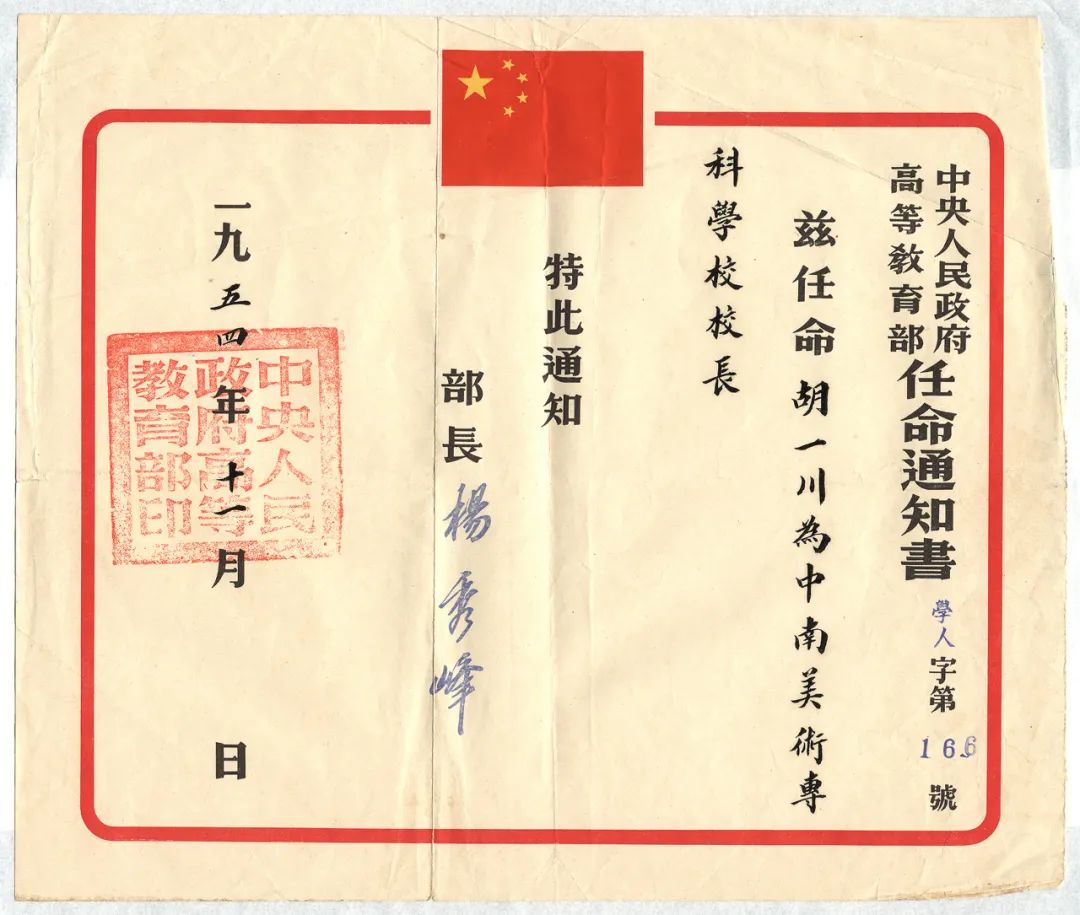 中央人民政府
高等教育部
任命通知書
學人字第166號
茲任命胡一川為中南美術專
科學校校長
特此通知
部長 楊秀峰
一九五四年十一月 日
中央人民
政府高等
教育部印